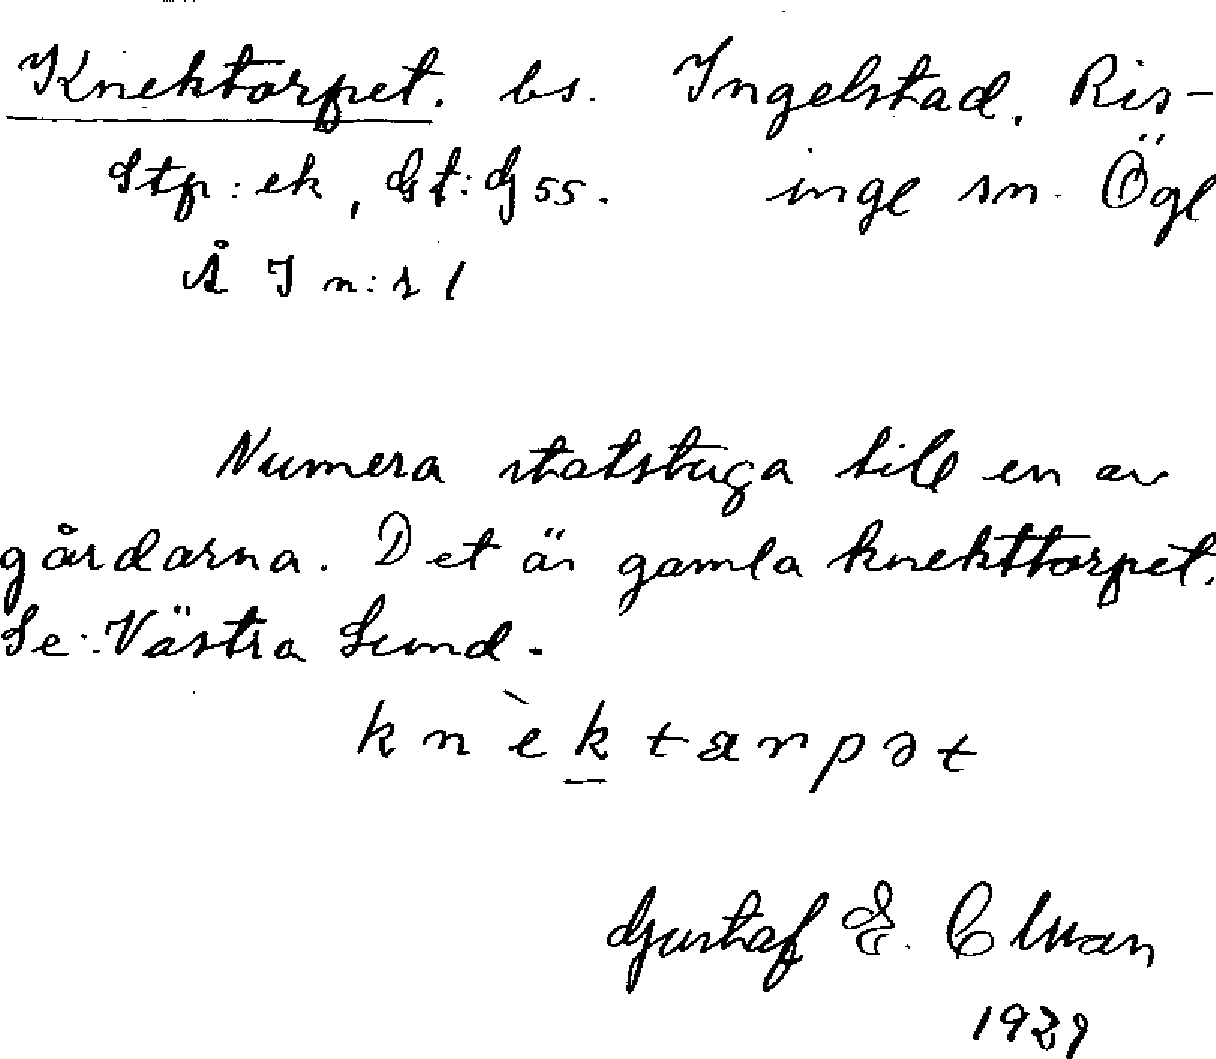 Knektorpet. bs. Ingelstad. Ris-
Stp: ek, Gf: G 55. inge sn. Ögl
Å I n:r 1
Numera statstuga till en av
gårdarna. Det är gamla knekttorpet.
Se: Västra Sund.
k n è k t a r p ə t
Gustaf E.
1929